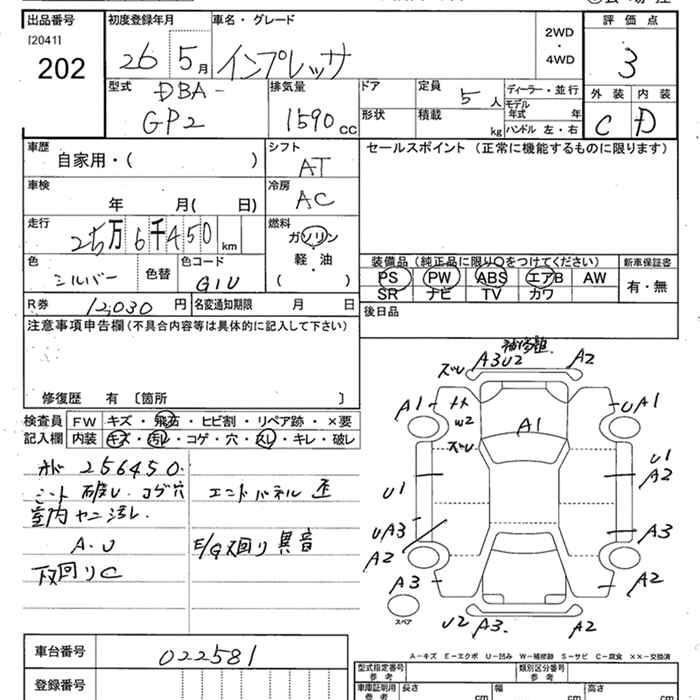 出品番号
[2041]
202
初度登録年月
26 5月
車名・グレード
インプレッサ
2WD
・
4WD
評価点
3
外装 内装
C D
型式
DBA-
GP2
排気量
1590cc
ドア
形状
定員
5人
積載
kg
ディーラー・並行
モデル
年式 年
ハンドル 左・右
車歴
自家用・( )
シフト
AT
セールスポイント (正常に機能するものに限ります)
車検
年 月( 日)
冷房
AC
走行
25万6千450km
燃料
ガソリン
軽・油
( )
色
シルバー
色替
色コード
G1U
装備品 (純正品に限り○をつけてください)
新車保証書
PS PW ABS エアB AW
有・無
SR ナビ TV カワ
R券 12,030 円
名変通知期限 月 日
後日品
注意事項申告欄 (不具合内容等は具体的に記入して下さい)
修復歴 有 〔箇所 〕
検査員
記入欄
FW キズ・飛石・ヒビ割・リペア跡・×要
内装 キズ・汚レ・コゲ・穴・スレ・キレ・破レ
256450.
シート 破レ. コゲ穴
室内ヤニ汚レ.
A.U
下回りC
エンドパネル 歪
E/G回り異音
ズレ A3U2 A2
A1
W2
ズレ
A1
UA1
U1
U1
A2
UA3
A2
A3
A3
A2
スペア
U2 A3. A2
A-キズ E-エクボ U-凹み W-補修跡 S-サビ C-腐食 ××-交換済
車台番号
022581
登録番号
型式指定番号
参考
類別区分番号
参考
車庫証明用
参考
長さ cm
幅 cm
高さ cm